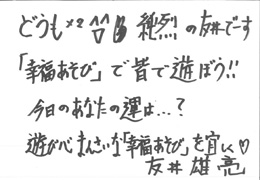 どうも×2 純烈の友井でーす
「幸福あそび」で皆で遊ぼう!!
今日のあなたの運は…?
遊び心まんさいな「幸福あそび」を宜しく♡
友井雄亮